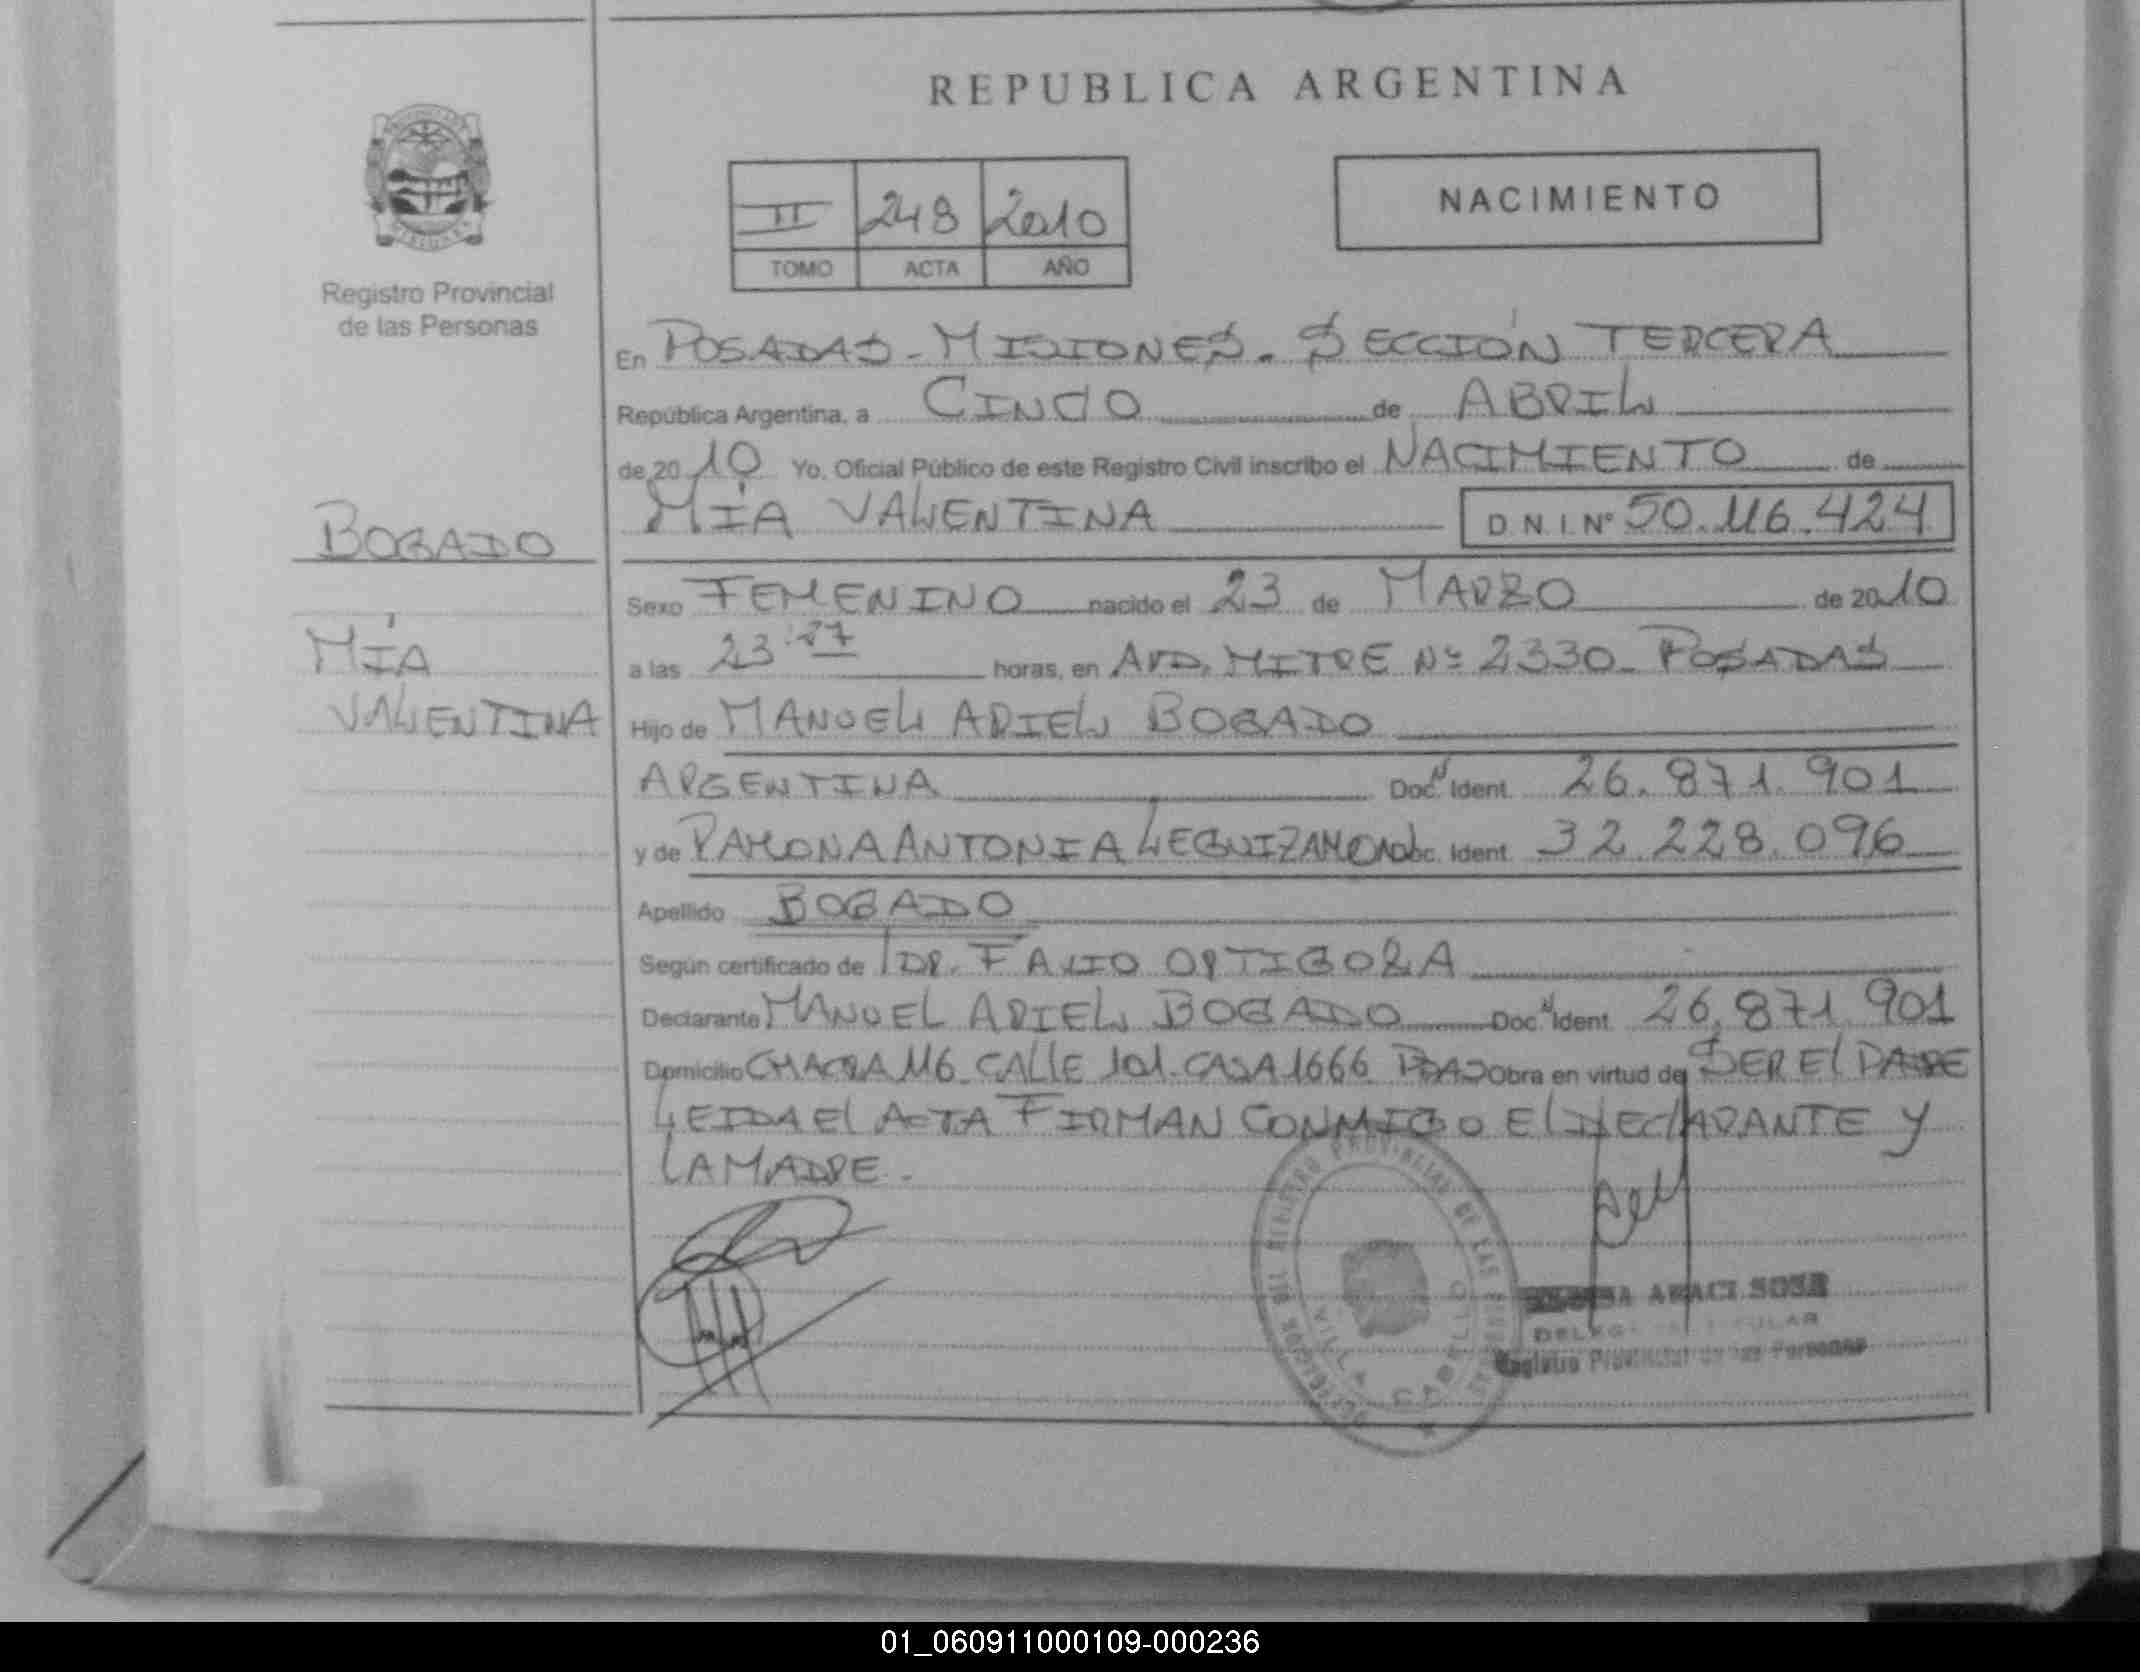 REPUBLICA ARGENTINA
II 248 2010
TOMO ACTA AÑO
NACIMIENTO
Registro Provincial
de las Personas
BOGADO
MÍA
VALENTINA
En POSADAS - MISIONES. SECCIÓN TERCERA
República Argentina, a CINCO de ABRIL
de 2010 Yo, Oficial Público de este Registro Civil inscribo el NACIMIENTO de
MÍA VALENTINA D.N.I. Nº 50.116.424
Sexo FEMENINO nacido el 23 de MARZO de 2010
a las 23:27 horas, en AVD. MITRE Nº 2330 - POSADAS
Hijo de MANUEL ARIEL BOGADO
ARGENTINA Doc. Ident. 26.871.901
y de RAMONA ANTONIA LEGUIZAMON Doc. Ident. 32.228.096
Apellido BOGADO
Según certificado de DR. ORTIGOZA
Declarante MANUEL ARIEL BOGADO Doc. Ident. 26.871.901
Domicilio CHACRA 116 - CALLE 101 - CASA 1666 PDAS Obra en virtud de SER EL PADRE
LEIDA EL ACTA FIRMAN CONMIGO EL DECLARANTE Y
LA MADRE.
REGISTRO PROVINCIAL DE LAS PERSONAS
VILLA CABELLO
ARACI SOSA
Registro Provincial de las Personas
01_060911000109-000236